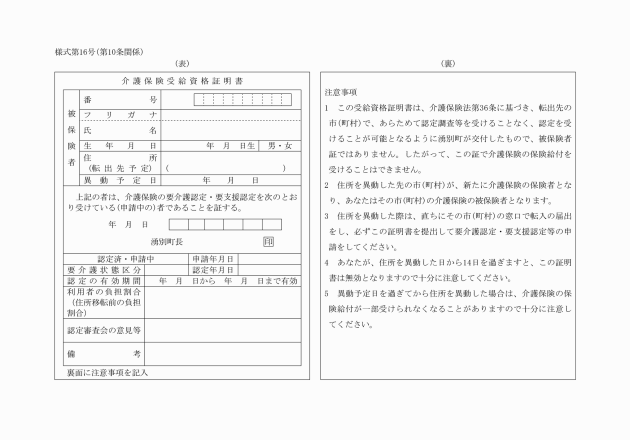 様式第16号(第10条関係)
(表)
介護保険受給資格証明書
被保険者
番号
フリガナ
氏名
生年月日 年 月 日生 男・女
住所
(転出先予定) ( )
異動予定日 年 月 日
上記の者は、介護保険の要介護認定・要支援認定を次のとお
り受けている(申請中の)者であることを証する。
年 月 日
湧別町長 印
認定済・申請中 申請年月日
要介護状態区分 認定年月日
認定の有効期間 年 月 日から 年 月 日まで有効
利用者の負担割合
(住所移転前の負担
割合)
認定審査会の意見等
備考
裏面に注意事項を記入
(裏)
注意事項
1 この受給資格証明書は、介護保険法第36条に基づき、転出先の
市(町村)で、あらためて認定調査等を受けることなく、認定を受
けることが可能となるように湧別町が交付したもので、被保険者
証ではありません。したがって、この証で介護保険の保険給付を
受けることはできません。
2 住所を異動した先の市(町村)が、新たに介護保険の保険者とな
り、あなたはその市(町村)の介護保険の被保険者となります。
3 住所を異動した際は、直ちにその市(町村)の窓口で転入の届出
をし、必ずこの証明書を提出して要介護認定・要支援認定等の申
請をしてください。
4 あなたが、住所を異動した日から14日を過ぎますと、この証明
書は無効となりますので十分に注意してください。
5 異動予定日を過ぎてから住所を異動した場合は、介護保険の保
険給付が一部受けられなくなることがありますので十分に注意し
てください。